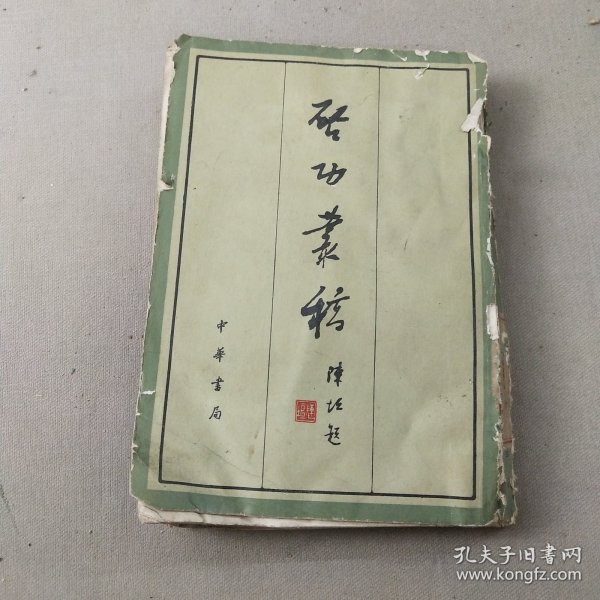 启功叢稿
陳垣題
中華書局
孔夫子旧書网
www.kongfz.com